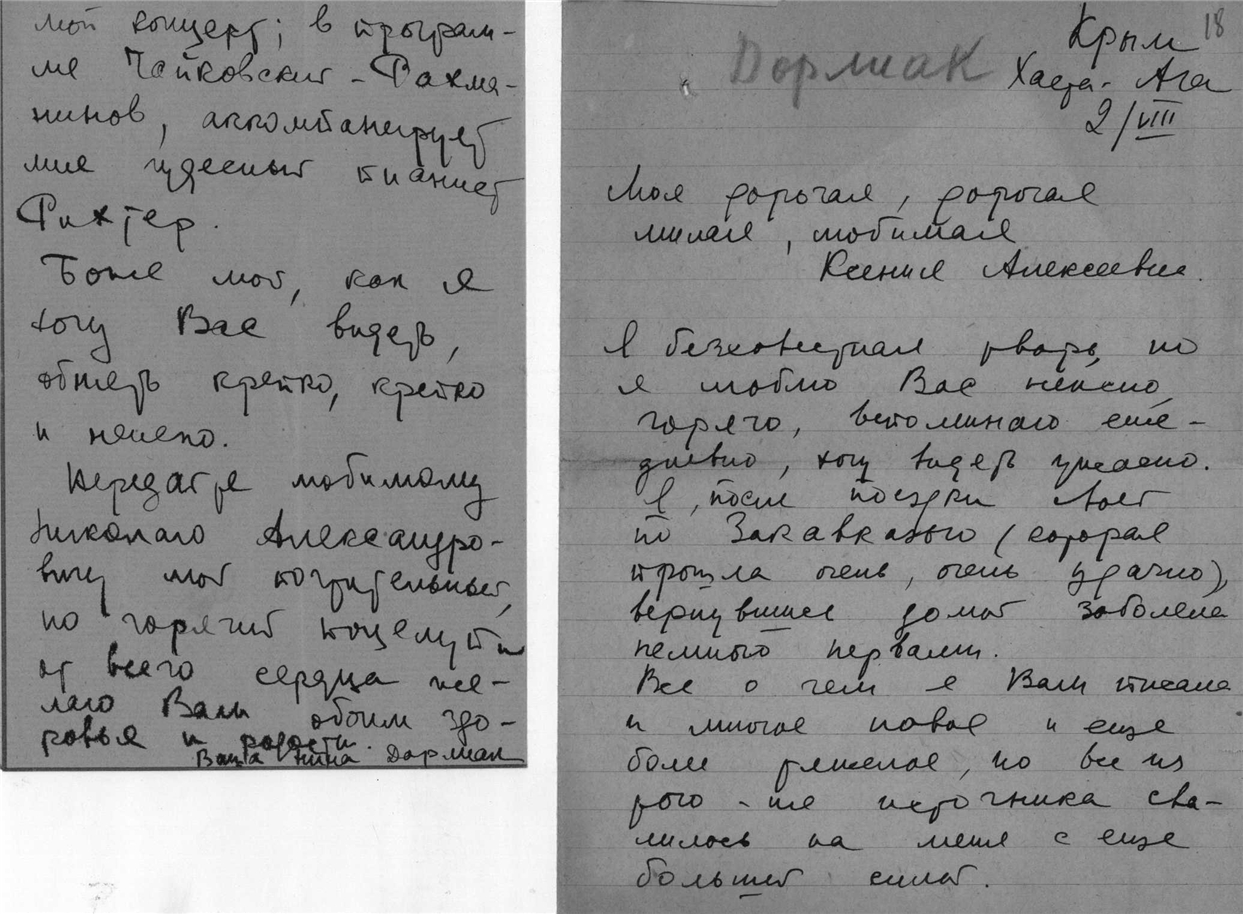 мой концерт; в програм-
ме Чайковский - Рахма-
нинов, аккомпанирует
мне чудесный пианист
Рихтер.
Боже мой, как я
хочу Вас видеть,
обнять крепко, крепко
и нежно.
Передайте любимому
Николаю Алексанdro-
вичу мой почтительный,
но горячий поцелуй и
от всего сердца же-
лаю Вам обоим здо-
ровья и радости.
Ваша Нина Дорлиак
18
Дорлиак
Крым
Хаста-Ага
2/VIII
Моя дорогая, дорогая
милая, любимая
Ксения Алексеевна.
Я безсовестная тварь, но
я люблю Вас нежно,
горячо, вспоминаю еже-
дневно, хочу видеть ужасно.
Я, после поездки своей
по Закавказью (которая
прошла очень, очень удачно),
вернувшись домой заболела
немного нервами.
Все о чем я Вам писала
и многое новое и еще
более тяжелое, но все из
того-же источника сва-
лилось на меня с еще
большей силой.